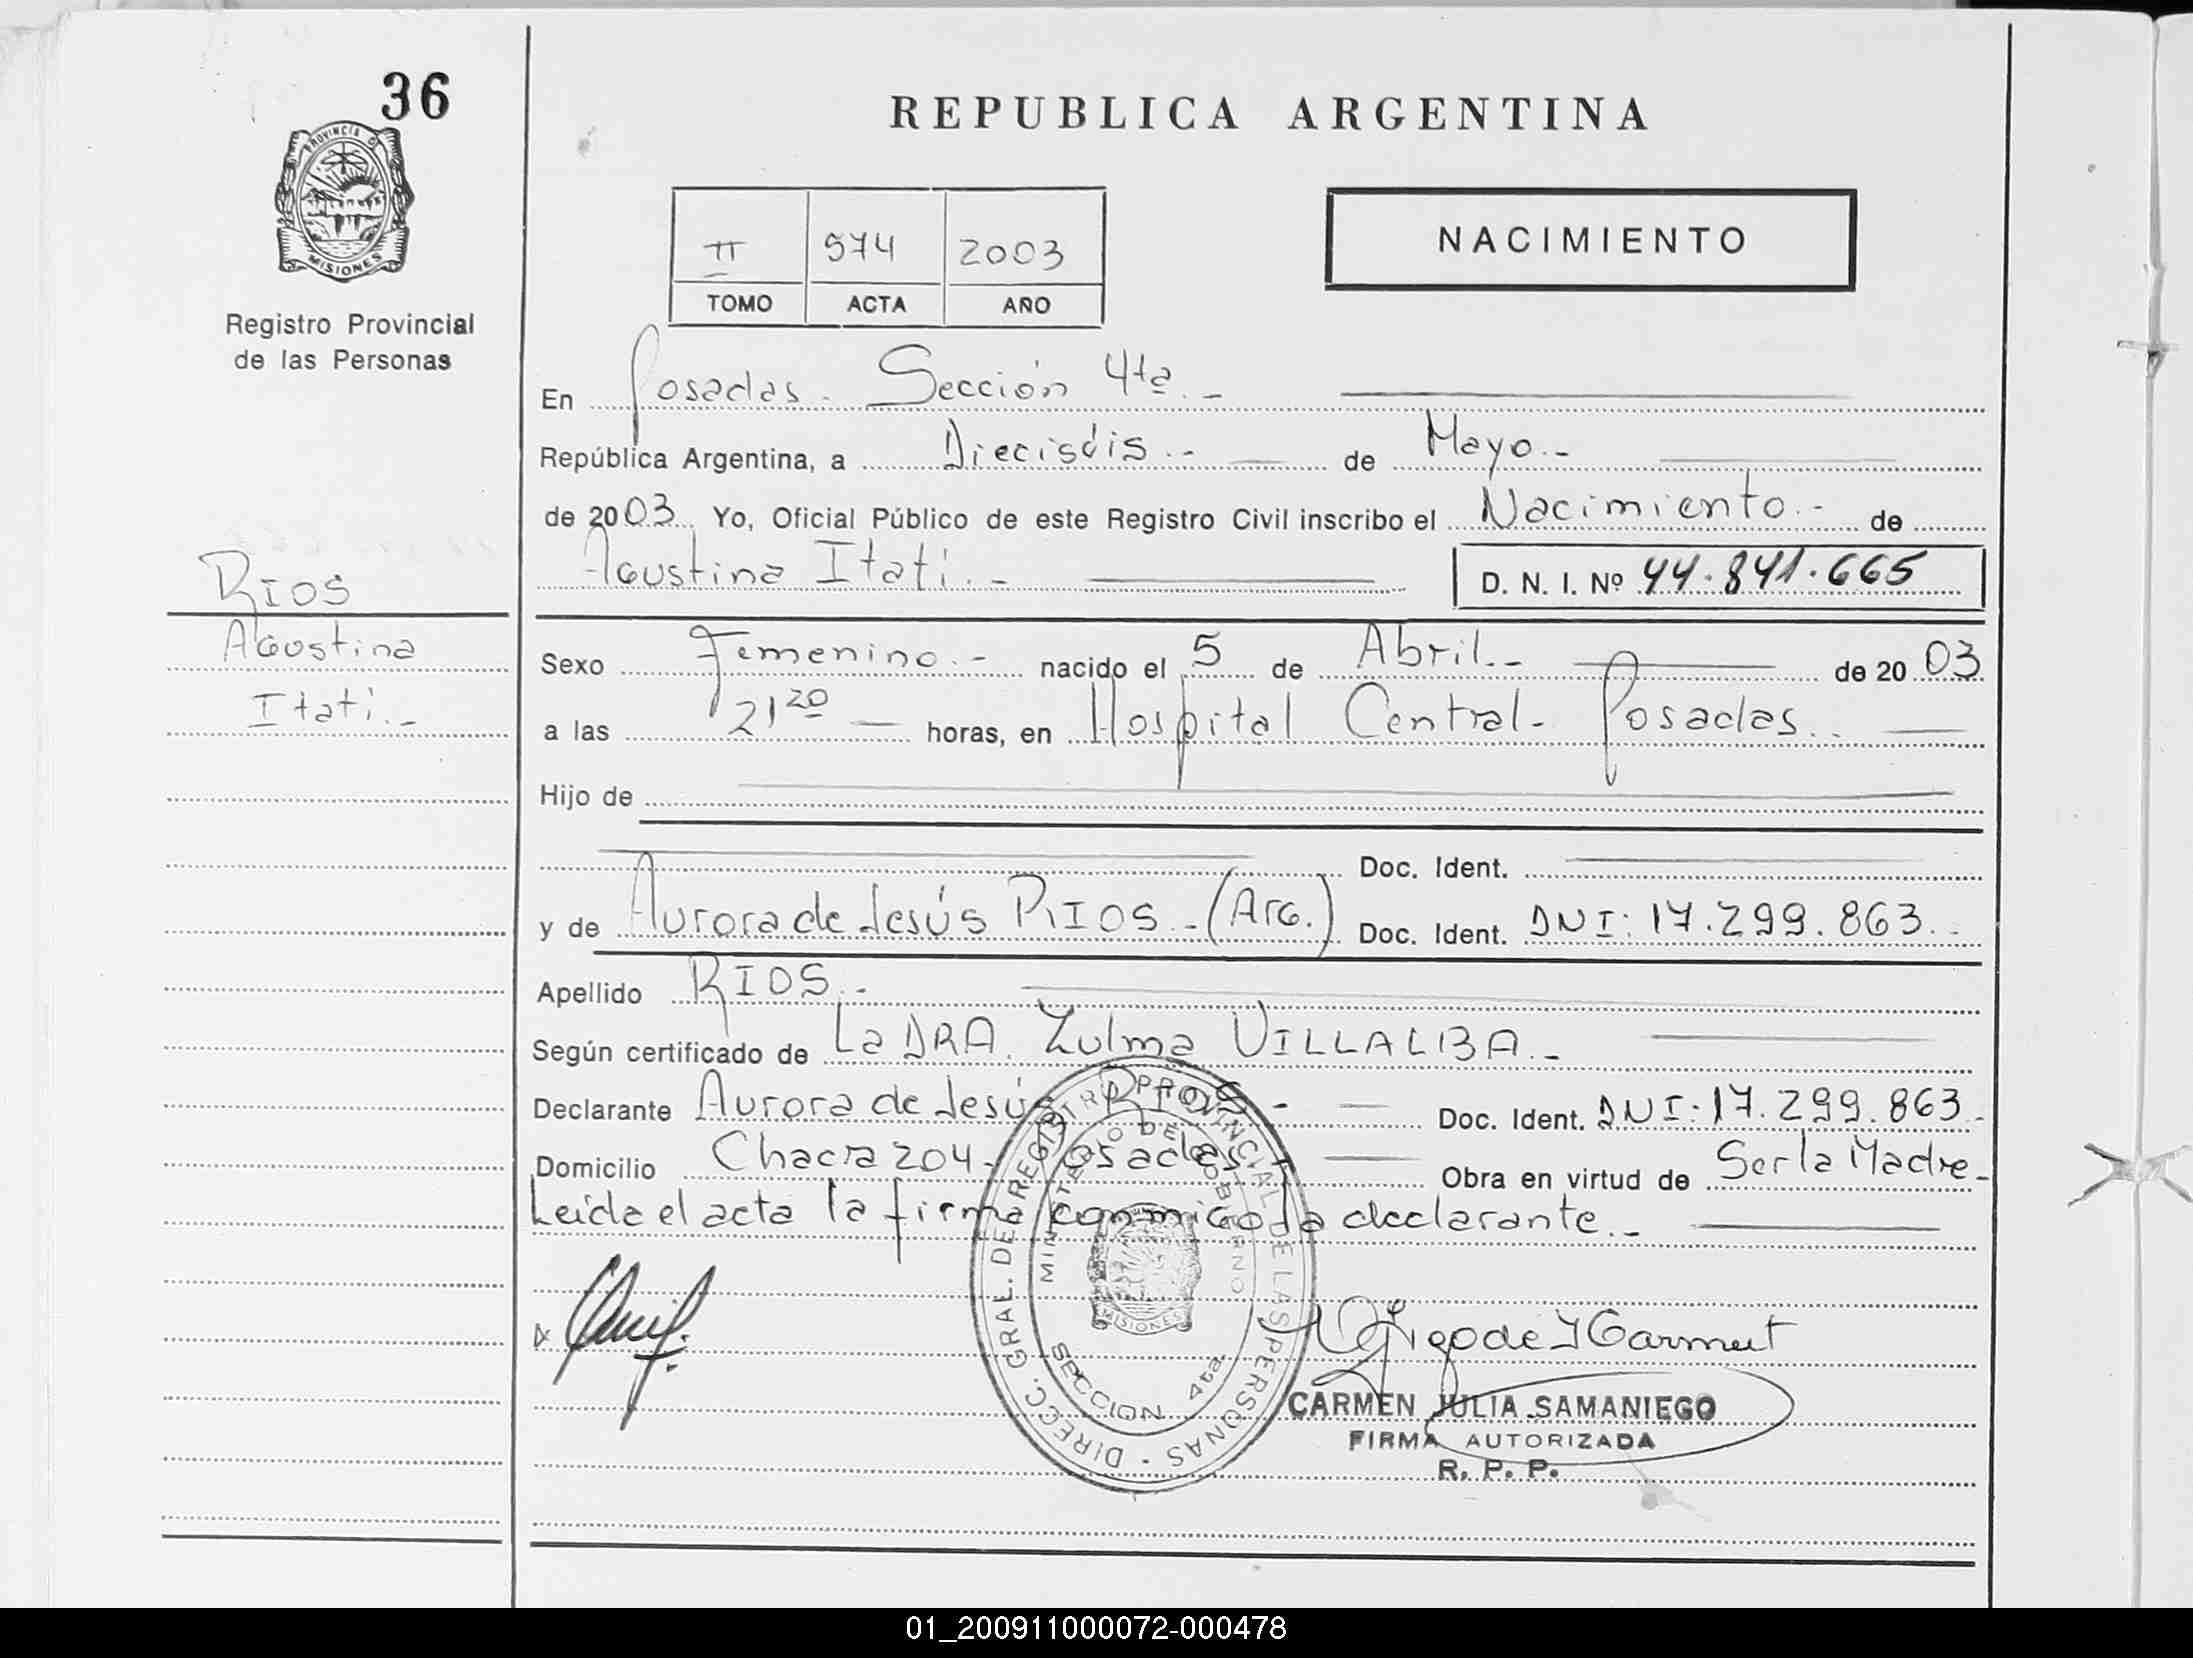 36
PROVINCIA D
MISIONES
Registro Provincial
de las Personas
RIOS
Agustina
Itatí.-
REPUBLICA ARGENTINA
II 574 2003
TOMO ACTA AÑO
NACIMIENTO
En Posadas. Sección 4ta.-
República Argentina, a Dieciséis.- de Mayo.-
de 2003. Yo, Oficial Público de este Registro Civil inscribo el Nacimiento.- de
Agustina Itatí.- D. N. I. Nº 44.841.665
Sexo Femenino.- nacido el 5 de Abril.- de 2003
a las 21 20 horas, en Hospital Central- Posadas.
Hijo de
Doc. Ident.
y de Aurora de Jesús RIOS.-(Arg.) Doc. Ident. DNI: 17.299.863.-
Apellido RIOS.-
Según certificado de La DRA. Zulma VILLALBA.-
Declarante Aurora de Jesús RIOS- Doc. Ident. DNI: 17.299.863-
Domicilio Chacra 204- Posadas- Obra en virtud de Ser la Madre-
Leída el acta la firma conmigo la declarante.-
DIRECC. GRAL. DEL REGISTRO PROVINCIAL DE LAS PERSONAS -
MINISTERIO DE GOBIERNO
MISIONES
SECCION 4ta.
CARMEN JULIA SAMANIEGO
FIRMA AUTORIZADA
R. P. P.
01_200911000072-000478